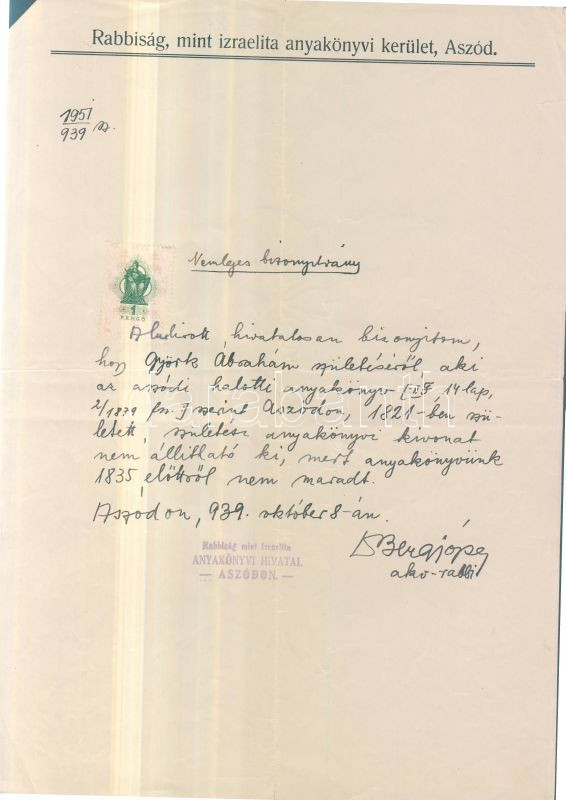 Rabbiság, mint izraelita anyakönyvi kerület, Aszód.
1951
939 sz.
Nemleges bizonyitvány
1
PENGŐ
Alulirott, hivatalosan bizonyitom,
hogy Györk Abrahám születéséről, aki
az aszódi halotti anyakönyv 14 lap,
2/1879 szerint Aszódon, 1821-ben szü-
letett, születési anyakönyvi kivonat
nem állitható ki, mert anyakönyvünk
1835 előttről nem maradt.
Aszódon, 939. október 8-án.
ako-rabbi
Rabbiság mint izraelita
ANYAKÖNYVI HIVATAL
— ASZÓDON. —
darabanth